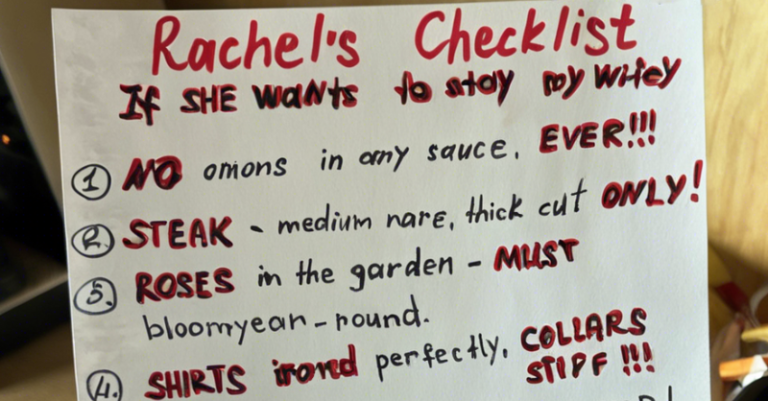 Rachel's Checklist
If SHE WANTS to stay my wifey
① NO onions in any sauce. EVER!!!
②. STEAK - medium nare, thick cut ONLY!
③. ROSES in the garden - MUST
bloomyear-round.
④. SHIRTS irond perfectly, COLLARS
STIFF !!!